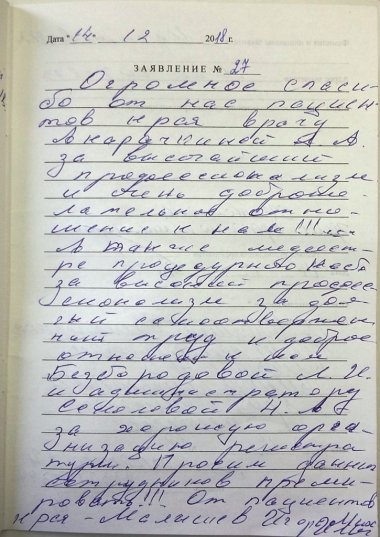 Дата "14" 12 2018 г.
ЗАЯВЛЕНИЕ № 27
Огромное спаси-
бо от нас пациен-
тов края врачу
А. А.
за высочайший
профессионализм
и очень доброже-
лательное отно-
шение к нам!!!....
А также медсест-
ре процедурного каб.
за высокий професс
сионализм за доб
рый самоотвержен
ный труд и доброе
отношение к нам
Безбородовой Л. И.
и администратору
Соколовой Н. А
за хорошую орга-
низацию регистра
туры. Просим данных
сотрудников преми-
ровать!!! От пациентов
края - Малышев Игорь